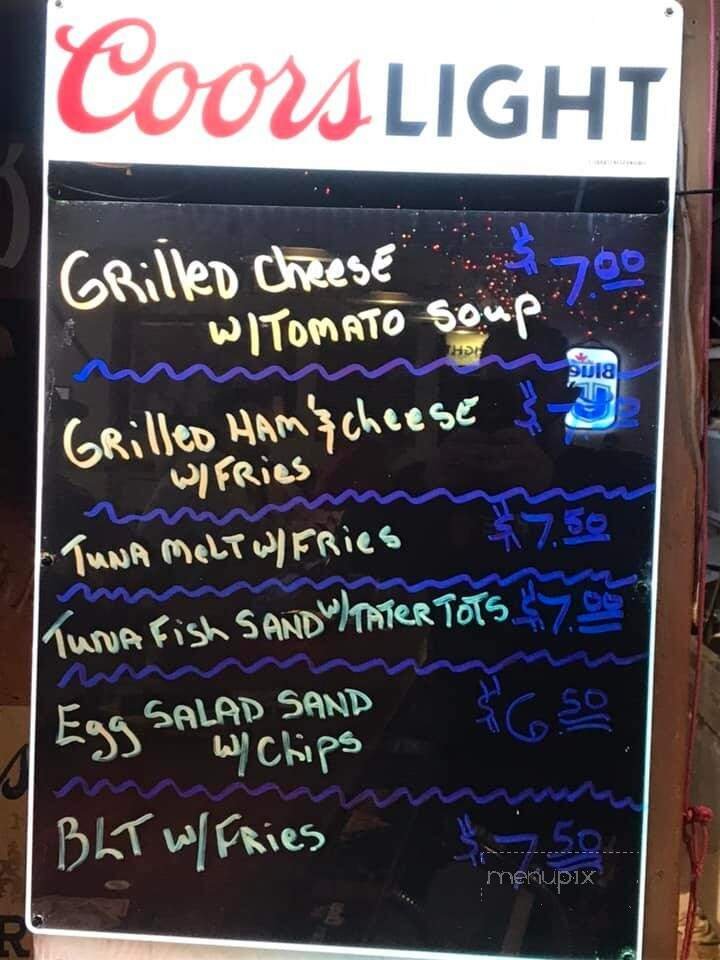 Coors LIGHT
GRilleD Cheese $7.00
W/TOMATO Soup
Blue
GRilleD HAM & Cheese $
W/FRies
TUNA MeLT W/FRies $7.50
TUNA Fish SAND W/TATeR TOTS $7.00
Egg SALAD SAND $6.50
W/ Chips
BLT W/FRies $7.50
menupix